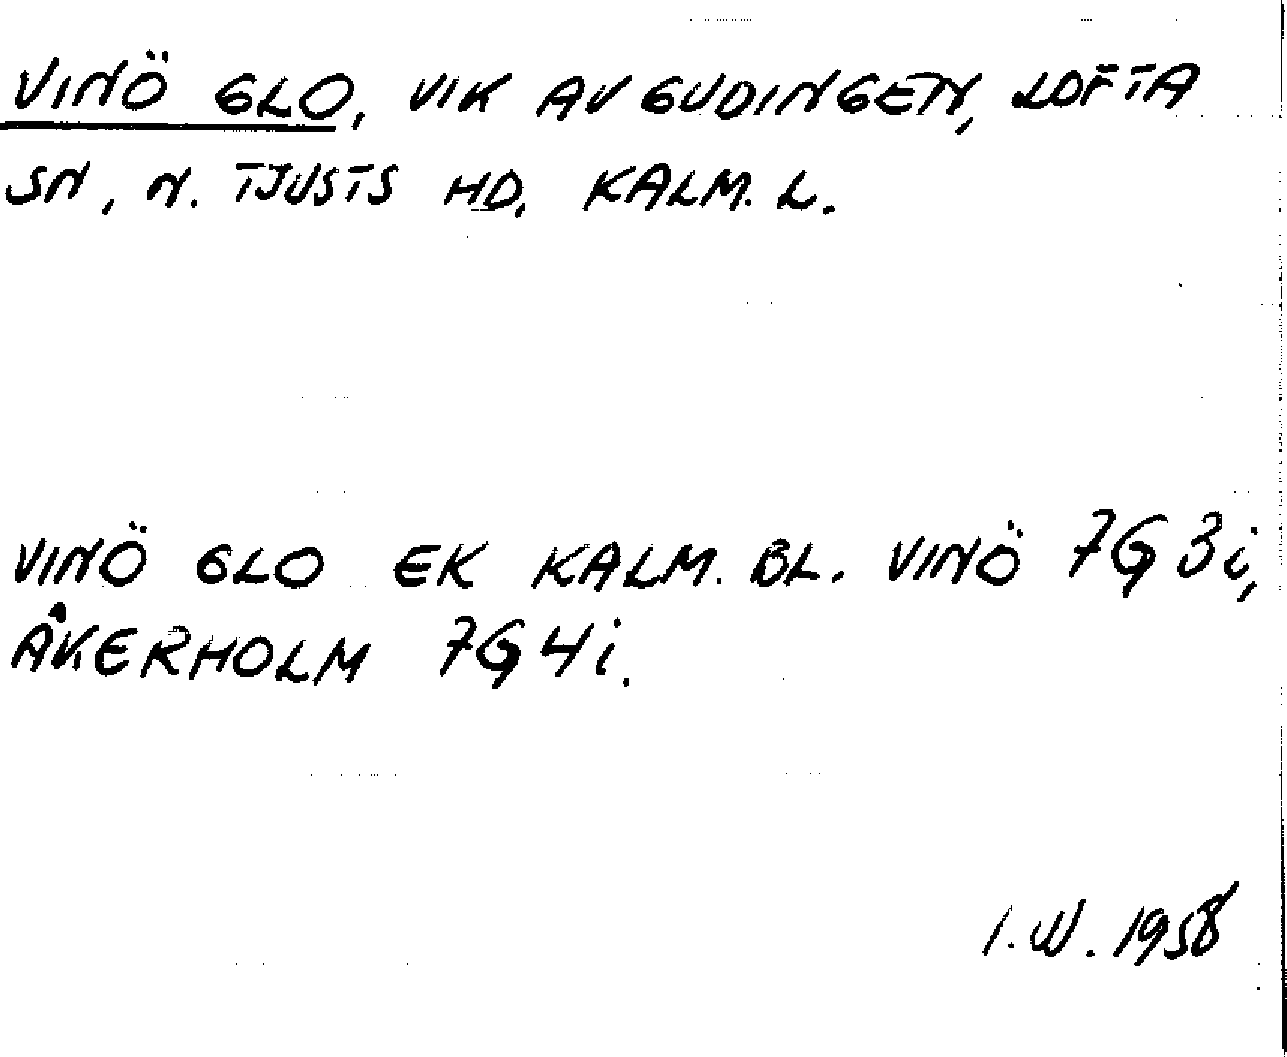 VINÖ GLO, VIK AV GUDINGEN, LOFTA
SN, N. TJUSTS HD, KALM. L.
VINÖ GLO EK KALM. BL. VINÖ 7G3i,
ÅKERHOLM 7G4i.
1. VI. 1958